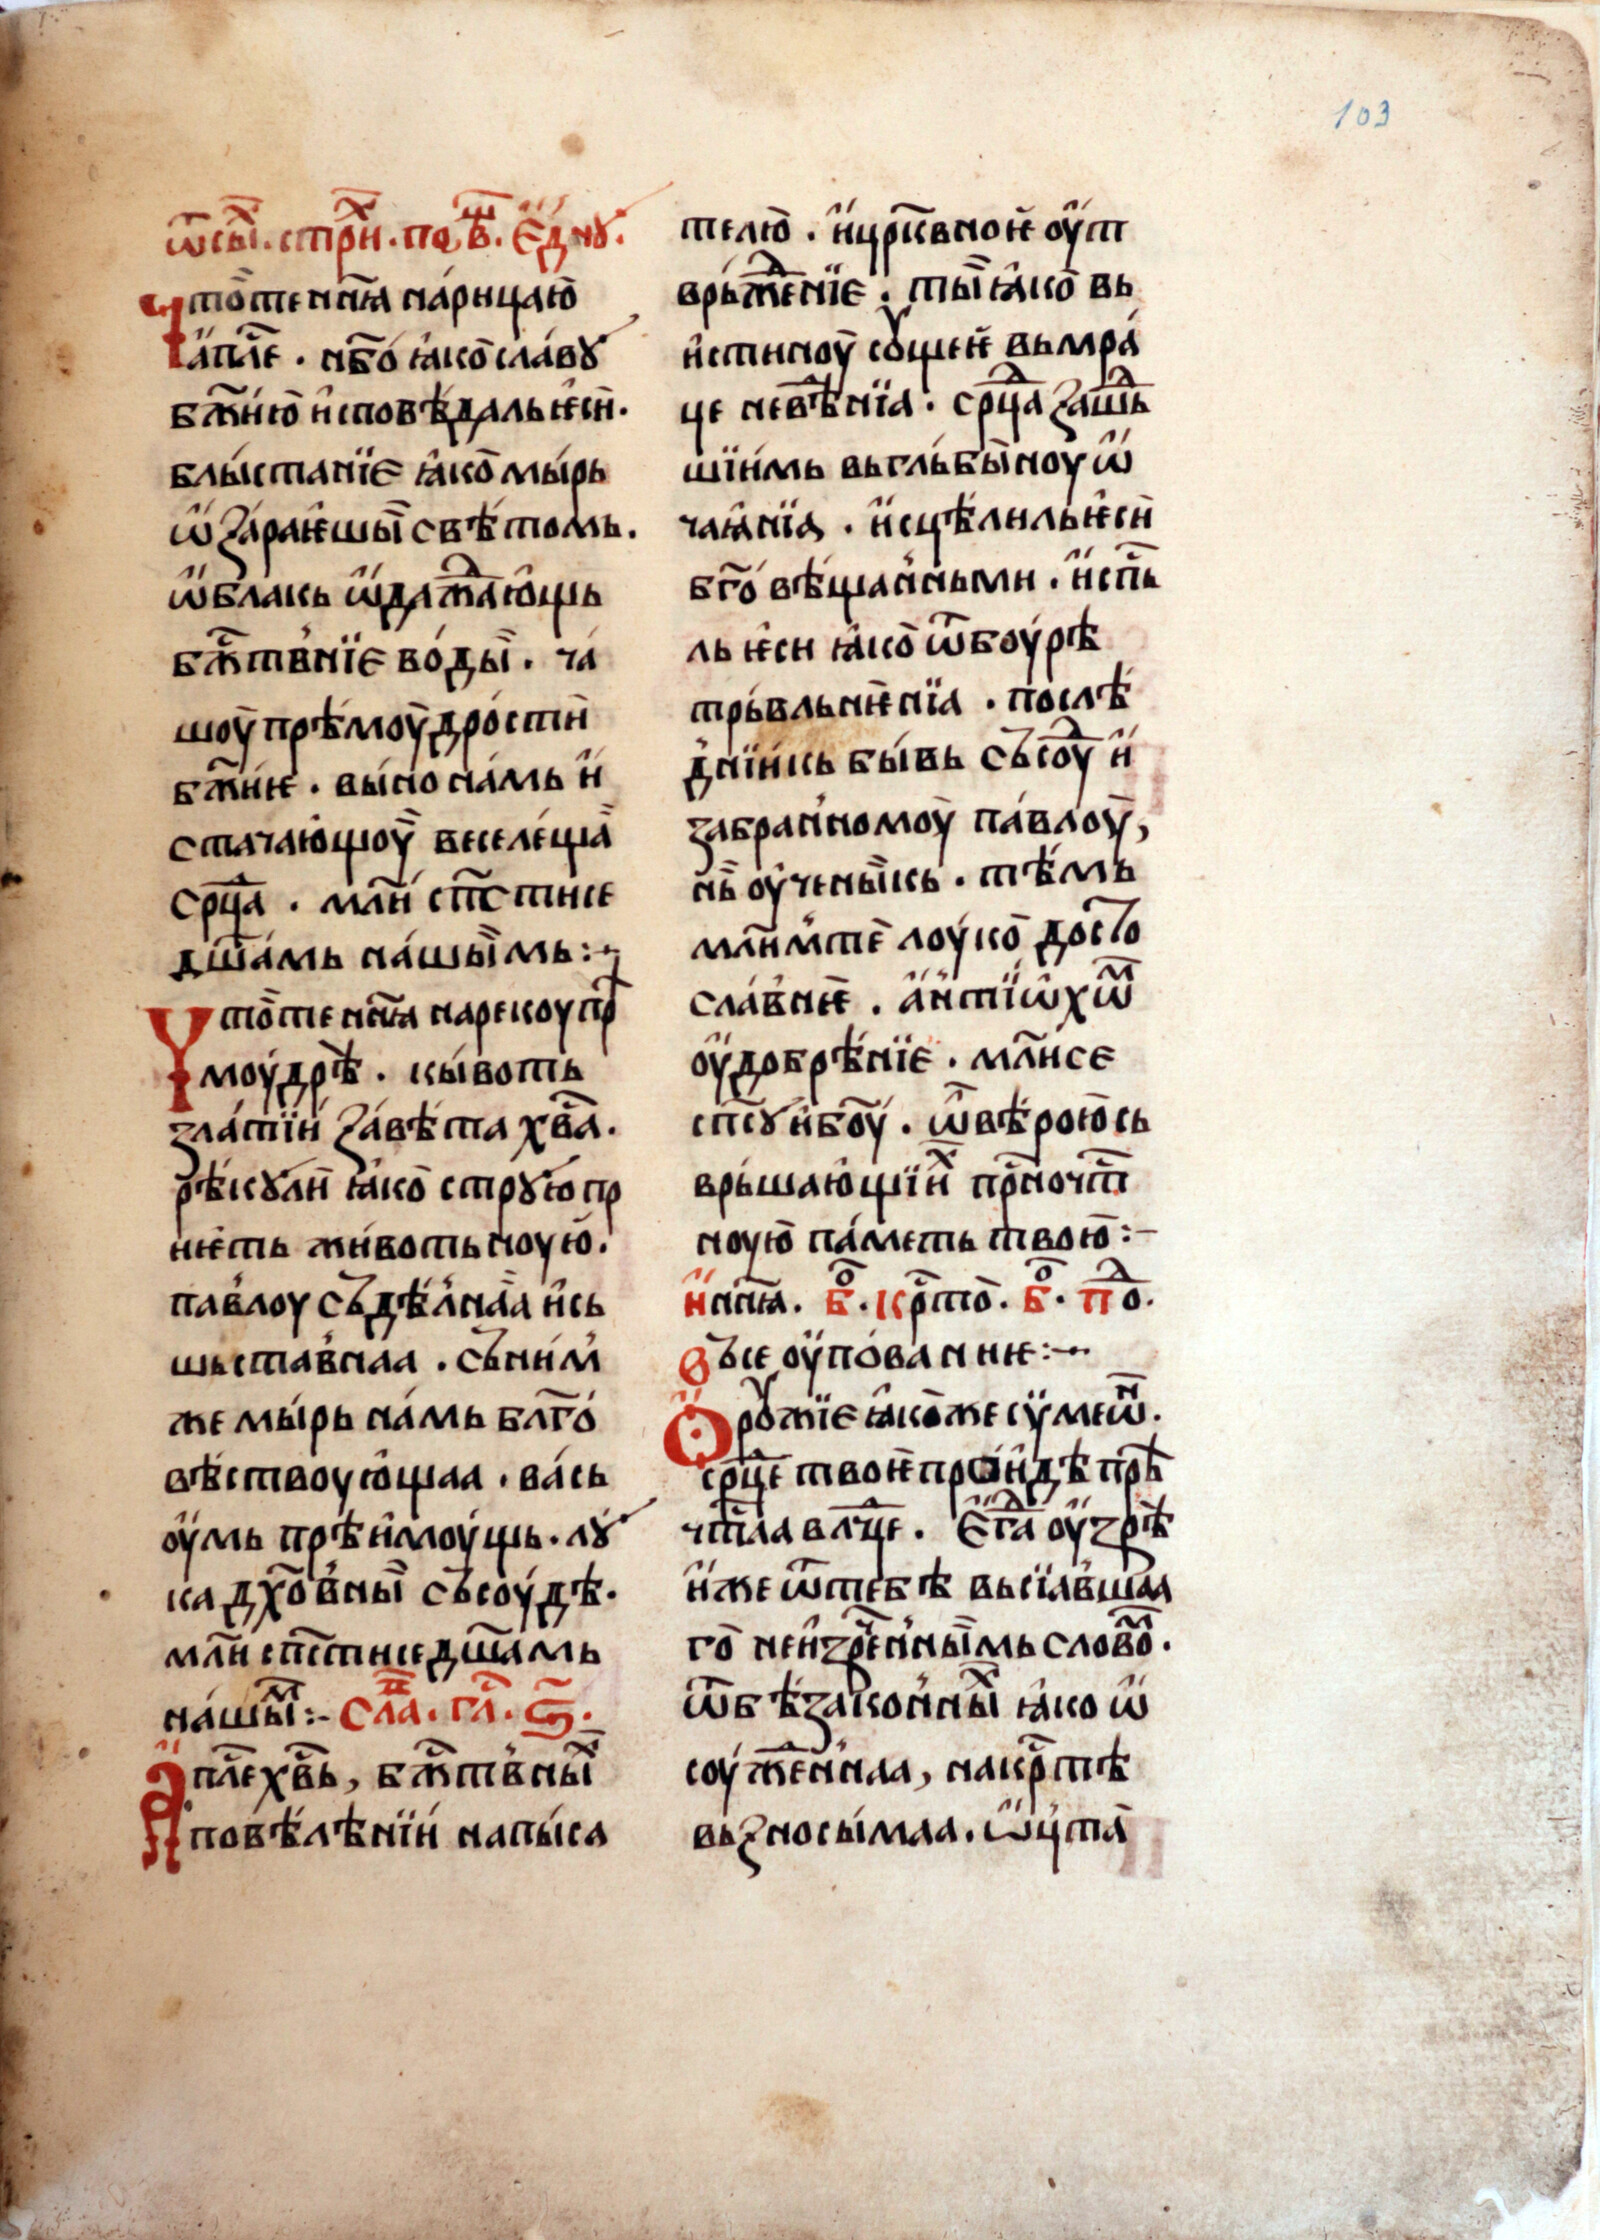 103
ѿ сы҆х. стрⷯи. по в҃ш. є҆́днꙋ.
Что̀ те нн҃ꙗ на́рицаю̀
а҆пⷭ҇ле. нб҃о ꙗ҆ко̀ сла́вꙋ
бж҃їю̀ и҆сповѣ́даль ѥ҆сѝ.
блы́станїе ꙗ҆ко̀ мы́рь
ѡ҆ꙁа́раѥшы̀ свѣ́томь.
ѡ҆́блакь ѡ҆даждаю҆щь
бжⷭ҇тв'нїе во́ды̀. ча́
шоу̀ прѣ́моу̀дро́стѝ
бж҃иѥ. вы́но на́мь и҆
стачаю҆щоу̀ веселе́ща̀
срⷣца. мл҃и́ спⷭ҇стисе
дш҃а́мь на́шы̀мь:~
Что̀ те нн҃ꙗ нарекоу прⷣ
моу́дрѣ. кы́воть
ꙁла́тїи́ ꙁа́вѣ́та хв҃а.
рѣ́кꙋ лѝ ꙗ҆ко̀ стрꙋ́ю пр
иѥ҆ть жи́вотьноую̀.
пав'лоу съдѣ́л'на̀а и҆сь
шьстав'наа. съни́м'
же мы́рь на́мь бл҃го́
вѣ́ствоую҆щаа. ва́сь
оу҆́мь прѣи҆моу́щь. лꙋ
ка дх҃ов'ны̀ съсоу́дѣ.
мл҃и спⷭ҇тисе дш҃амь
на́шыⷨ:- сла҃. гл҃. ѕ҃.
А҆пⷭ҇ле хв҃ь, бжⷭ҇тв'ныⷯ
повѣ́лѣ́нїи́ напы́са
телю̀. и҆ цр҃квноѥ̀ оу҆т
врь́жⷣенїе. ты̀ ꙗ҆ко̀ вь
и҆стиноу̀ сꙋщеѥ̀ вьмра́
це невѣⷣнїа. срⷣца ꙁашⷣь
шїи́мь вьгль́бы̀ноу ѡ҆
чаꙗ҆нїꙗ. и҆сцѣ́лиль ѥ҆сѝ
бг҃о́вѣ́щан'ньми. и҆ спⷭ҇ь
ль ѥ҆си ꙗ҆ко̀ ѿбоу́рѣ
трь́вльнѥ̀нїа. послѣ́
д'нїи́кь бы́вь съсоуⷣ и҆
ꙁабран'номоу̀ па́влоу̀,
нь̀ оу҆чены̀кь. тѣ́мь
мл҃им'тѐ лоу́ко̀ досто
сла́в'нѥ̀. а҆н'тїѡ҆хѡⷨ
оу҆добрѣ́нїе. мл҃исе
сп҃сꙋ и҆ бо҃у́. ѿ вѣ́рою̀ сь
врь́шаю҆щїиⷯ прⷣночтⷭ
ноую̀ па́меть твою̀:-
и҆ нн҃ꙗ. б҃о. крⷭ҇то. б҃о. по҃ⷣ.
Въсе оу҆по́ваниѥ:~
Ѻ҆рꙋ́жїе ꙗ҆ко̀же сѵмеѡⷩ.
срⷣце твоѥ̀ прои҆дѣ прⷣѣ
чтⷭ҇аа влⷣце. є҆гⷣа оу҆ꙁрѣ́
и҆же ѿтебѣ вьсїав'шаа
го̀ неи҆ꙁрⷱен'ны̀мь словоⷨ.
ѿ бѣꙁакон'ныⷯ ꙗ҆ко ѡ҆
соу́жⷣен'наа, на крⷭ҇тѣ
вьꙁносы́маа. ѡ҆ц'та̀